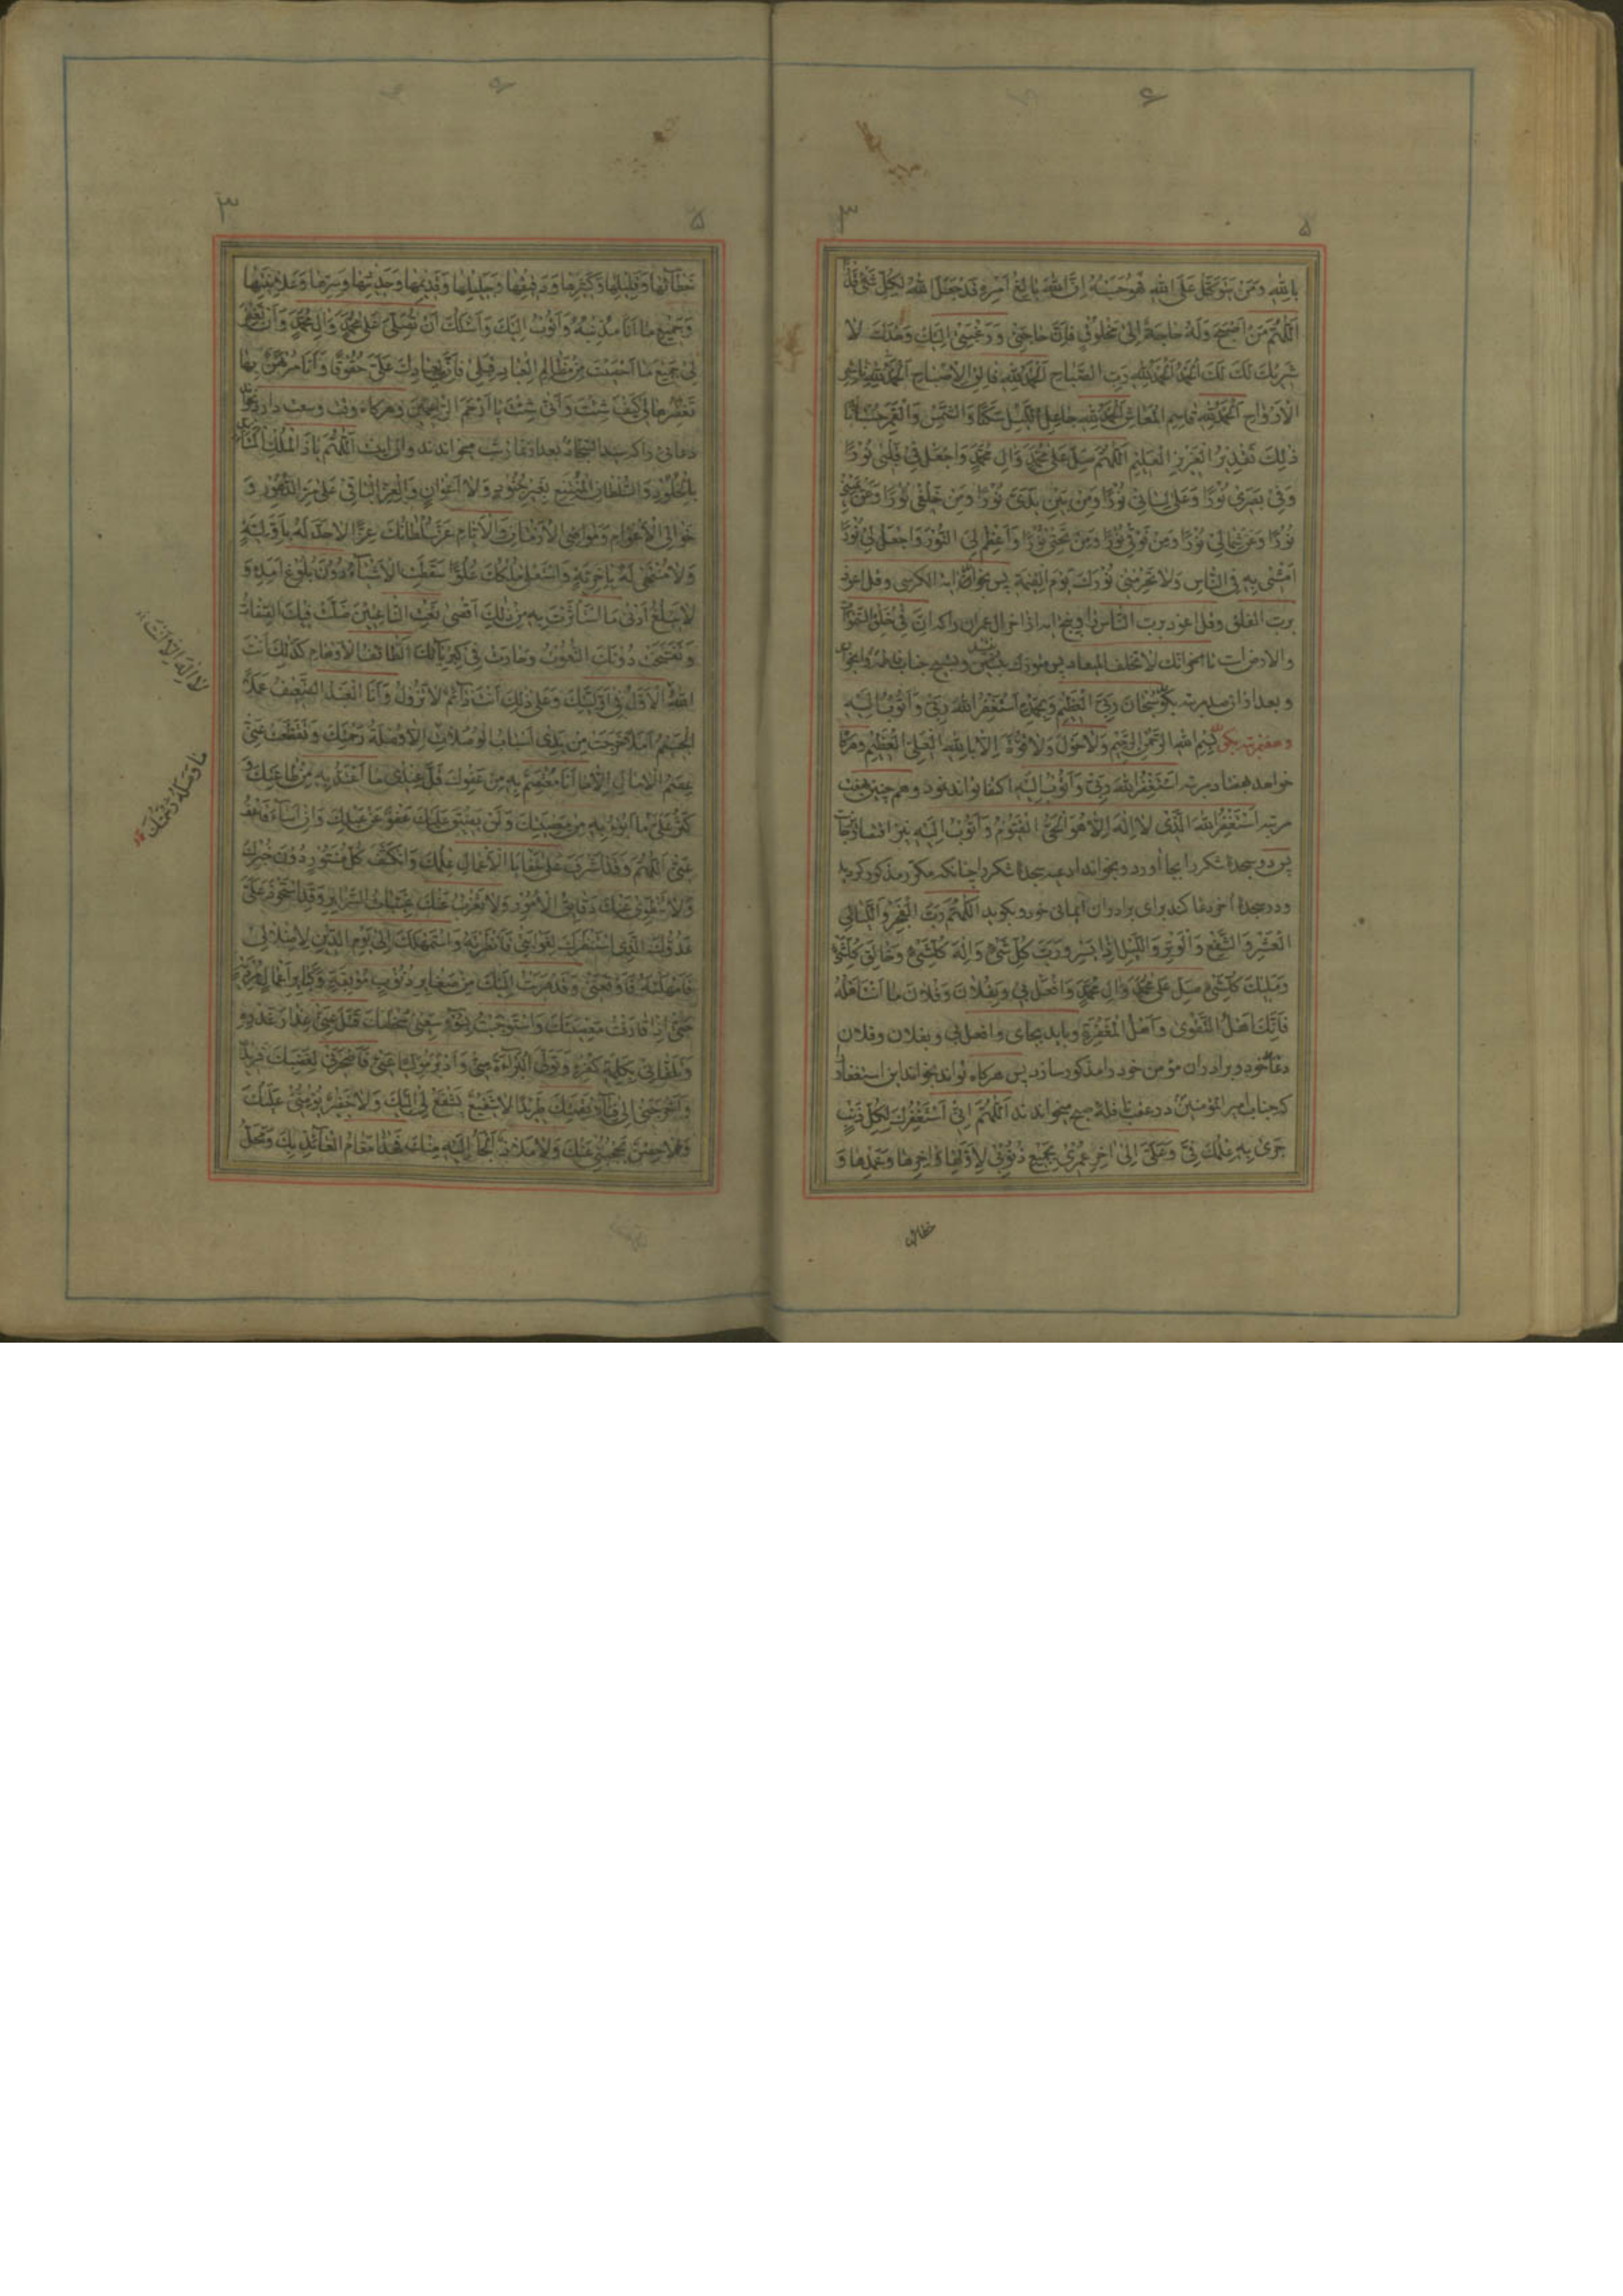 بِاللّٰهِ وَمَنْ يَتَوَكَّلْ عَلَى اللّٰهِ فَهُوَ حَسْبُهُ اِنَّ اللّٰهَ بٰالِغُ اَمْرِهِ قَدْ جَعَلَ اللّٰهُ لِكُلِّ شَیْءٍ قَدْرًا
اَللّٰهُمَّ مَنْ اَصْبَحَ وَلَهُ حٰاجَةٌ اِلىٰ مَخْلُوقٍ فَاِنَّ حٰاجَتِی وَرَغْبَتِی اِلَيْكَ وَحْدَكَ لٰا
شَرِيكَ لَكَ لَكَ الْحَمْدُ اَلْحَمْدُ لِلّٰهِ رَبِّ الصَّبٰاحِ اَلْحَمْدُ لِلّٰهِ فٰالِقِ الْاِصْبٰاحِ اَلْحَمْدُ لِلّٰهِ نٰاشِرِ
الْاَرْوٰاحِ اَلْحَمْدُ لِلّٰهِ قٰاسِمِ الْمَعٰاشِ اَلْحَمْدُ لِلّٰهِ جٰاعِلِ اللَّيْلِ سَكَنًا وَالشَّمْسَ وَالْقَمَرَ حُسْبٰانًا
ذٰلِكَ تَقْدِيرُ الْعَزِيزِ الْعَلِيمِ اَللّٰهُمَّ صَلِّ عَلىٰ مُحَمَّدٍ وَاٰلِ مُحَمَّدٍ وَاجْعَلْ فِی قَلْبِی نُورًا
وَفِی بَصَرِی نُورًا وَعَلىٰ لِسٰانِی نُورًا وَمِنْ بَيْنِ يَدَیَّ نُورًا وَمِنْ خَلْفِی نُورًا وَعَنْ يَمِينِی
نُورًا وَعَنْ شِمٰالِی نُورًا وَمِنْ فَوْقِی نُورًا وَمِنْ تَحْتِی نُورًا وَاَعْظِمْ لِیَ النُّورَ وَاجْعَلْ لِی نُورًا
اَمْشِی بِهِ فِی النّٰاسِ وَلٰا تَحْرِمْنِی نُورَكَ يَوْمَ الْقِيٰمَةِ پس بخواند اية الكرسی وقل اعوذ
برب الفلق وقل اعوذ برب الناس و پنج ايه از اخر ال عمران را كه اِنَّ فِی خَلْقِ السَّمٰوٰاتِ
والارض است تا انك لا تخلف الميعاد پس وتسبيح جناب فاطمه را بخواند
و بعد از ان صد مرتبه بگويد سُبْحٰانَ رَبِّیَ الْعَظِيمِ وَبِحَمْدِهِ اَسْتَغْفِرُ اللّٰهَ رَبِّی وَاَتُوبُ اِلَيْهِ
بِسْمِ اللّٰهِ الرَّحْمٰنِ الرَّحِيمِ وَلٰا حَوْلَ وَلٰا قُوَّةَ اِلّٰا بِاللّٰهِ الْعَلِیِّ الْعَظِيمِ
خواهد هفتاد مرتبه اَسْتَغْفِرُ اللّٰهَ رَبِّی وَاَتُوبُ اِلَيْهِ اكتفا تواند نمود و هم چنين هفت
مرتبه اَسْتَغْفِرُ اللّٰهَ الَّذِی لٰا اِلٰهَ اِلّٰا هُوَ الْحَیُّ الْقَيُّومُ وَاَتُوبُ اِلَيْهِ نيز
پس دو سجدهٔ شكر را بجا آورد و بخواند ادعيه سجدهٔ شكر را چنانكه مكرّر مذكور كرديد
و در سجدهٔ آخر دعا كند برای برادران ايمانی خود و بگويد اَللّٰهُمَّ رَبَّ الْفَجْرِ وَاللَّيٰالِی
الْعَشْرِ وَالشَّفْعِ وَالْوَتْرِ وَاللَّيْلِ اِذٰا يَسْرِ وَرَبَّ كُلِّ شَیْءٍ وَاِلٰهَ كُلِّ شَیْءٍ وَخٰالِقَ كُلِّ شَیْءٍ
وَمَلِيكَ كُلِّ شَیْءٍ صَلِّ عَلىٰ مُحَمَّدٍ وَاٰلِ مُحَمَّدٍ وَافْعَلْ بِی وَبِفُلٰانٍ وَفُلٰانٍ مٰا اَنْتَ اَهْلُهُ
فَاِنَّكَ اَهْلُ التَّقْوىٰ وَاَهْلُ الْمَغْفِرَةِ وبايد بجای وافعل بی وبفلان وفلان
دعای خود و برادران مؤمن خود را مذكور سازد پس هركاه تواند بخواند اين استغفار را
كه جناب امير المؤمنين در عقب نافلهٔ صبح ميخواندند اَللّٰهُمَّ اِنِّی اَسْتَغْفِرُكَ لِكُلِّ ذَنْبٍ
جَرىٰ بِهِ عِلْمُكَ فِیَّ وَعَلَیَّ اِلىٰ اٰخِرِ عُمْرِی بِجَمِيعِ ذُنُوبِی لِاَوَّلِهٰا وَاٰخِرِهٰا وَعَمْدِهٰا وَ
خطائها
خَطٰائِهٰا وَقَلِيلِهٰا وَكَثِيرِهٰا وَدَقِيقِهٰا وَجَلِيلِهٰا وَقَدِيمِهٰا وَحَدِيثِهٰا وَسِرِّهٰا وَعَلٰانِيَتِهٰا
وَجَمِيعِ مٰا اَنَا مُذْنِبُهُ وَاَتُوبُ اِلَيْكَ وَاَسْئَلُكَ اَنْ تُصَلِّیَ عَلىٰ مُحَمَّدٍ وَاٰلِ مُحَمَّدٍ وَاَنْ تَغْفِرَ
لِی جَمِيعَ مٰا اَحْصَيْتَ مِنْ مَظٰالِمِ الْعِبٰادِ قِبَلِی فَاِنَّ لِعِبٰادِكَ عَلَیَّ حُقُوقًا وَاَنَا مُرْتَهَنٌ بِهٰا
تَغْفِرُهٰا لِی كَيْفَ شِئْتَ وَاَنّىٰ شِئْتَ يٰا اَرْحَمَ الرّٰاحِمِينَ وهركاه وقت وسعت دارد بخواند
دعائی را كه سيد السجاد بعد از نماز شب ميخواندند وان اينست اَللّٰهُمَّ يٰا ذَا الْمُلْكِ الْمُتَاَبِّدِ
بِالْخُلُودِ وَالسُّلْطٰانِ الْمُمْتَنِعِ بِغَيْرِ جُنُودٍ وَلٰا اَعْوٰانٍ وَالْعِزِّ الْبٰاقِی عَلىٰ مَرِّ الدُّهُورِ وَ
خَوٰالِی الْاَعْوٰامِ وَمَوٰاضِی الْاَزْمٰانِ وَالْاَيّٰامِ عَزَّ سُلْطٰانُكَ عِزًّا لٰا حَدَّ لَهُ بِاَوَّلِيَّةٍ
وَلٰا مُنْتَهىٰ لَهُ بِاٰخِرِيَّةٍ وَاسْتَعْلىٰ مُلْكُكَ عُلُوًّا سَقَطَتِ الْاَشْيٰاءُ دُونَ بُلُوغِ اَمَدِهِ وَ
لٰا يَبْلُغُ اَدْنىٰ مَا اسْتَأْثَرْتَ بِهِ مِنْ ذٰلِكَ اَقْصىٰ نَعْتِ النّٰاعِتِينَ ضَلَّتْ فِيكَ الصِّفٰاتُ
وَتَفَسَّخَتْ دُونَكَ النُّعُوتُ وَحٰارَتْ فِی كِبْرِيٰائِكَ لَطٰائِفُ الْاَوْهٰامِ كَذٰلِكَ اَنْتَ
اللّٰهُ الْاَوَّلُ فِی اَوَّلِيَّتِكَ وَعَلىٰ ذٰلِكَ اَنْتَ دٰائِمٌ لٰا تَزُولُ وَاَنَا الْعَبْدُ الضَّعِيفُ عَمَلًا
الْجَسِيمُ اَمَلًا خَرَجَتْ مِنْ يَدِی اَسْبٰابُ الْوُصُلٰاتِ اِلّٰا وُصْلَةُ رَحْمَتِكَ وَتَقَطَّعَتْ عَنِّی
عِصَمُ الْاٰمٰالِ اِلّٰا مٰا اَنَا مُعْتَصِمٌ بِهِ مِنْ عَفْوِكَ قَلَّ عِنْدِی مٰا اَعْتَدُّ بِهِ مِنْ طٰاعَتِكَ وَ
كَثُرَ عَلَیَّ مٰا اَبُوءُ بِهِ مِنْ مَعْصِيَتِكَ وَلَنْ يَضِيقَ عَلَيْكَ عَفْوٌ عَنْ عَبْدِكَ وَاِنْ اَسٰاءَ فَاعْفُ
عَنِّی اَللّٰهُمَّ وَقَدْ اَشْرَفَ عَلىٰ خَفٰايَا الْاَعْمٰالِ عِلْمُكَ وَانْكَشَفَ كُلُّ مَسْتُورٍ دُونَ خُبْرِكَ
وَلٰا يَنْطَوِی عَنْكَ دَقٰائِقُ الْاُمُورِ وَلٰا يَعْزُبُ عَنْكَ غَيِّبٰاتُ السَّرٰائِرِ وَقَدِ اسْتَحْوَذَ عَلَیَّ
عَدُوُّكَ الَّذِی اسْتَنْظَرَكَ لِغَوٰايَتِی فَاَنْظَرْتَهُ وَاسْتَمْهَلَكَ اِلىٰ يَوْمِ الدِّينِ لِاِضْلٰالِی
فَاَمْهَلْتَهُ فَاَوْقَعَنِی وَقَدْ هَرَبْتُ اِلَيْكَ مِنْ صَغٰائِرِ ذُنُوبٍ مُوبِقَةٍ وَكَبٰائِرِ اَعْمٰالٍ مُرْدِيَةٍ
حَتّىٰ اِذٰا قٰارَفْتُ مَعْصِيَتَكَ وَاسْتَوْجَبْتُ بِسُوءِ سَعْيِی سَخْطَتَكَ فَتَلَ عَنِّی عِذٰارَ غَدْرِهِ
وَتَلَقّٰانِی بِكَلِمَةِ كُفْرِهِ وَتَوَلَّى الْبَرٰاءَةَ مِنِّی وَاَدْبَرَ مُوَلِّيًا عَنِّی فَاَصْحَرَنِی لِغَضَبِكَ فَرِيدًا
وَاَخْرَجَنِی اِلىٰ فِنٰاءِ نَقِمَتِكَ طَرِيدًا لٰا شَفِيعٌ يَشْفَعُ لِی اِلَيْكَ وَلٰا خَفِيرٌ يُؤْمِنُنِی عَلَيْكَ
وَلٰا حِصْنٌ يَحْجُبُنِی عَنْكَ وَلٰا مَلٰاذٌ اَلْجَأُ اِلَيْهِ مِنْكَ فَهٰذٰا مَقٰامُ الْعٰائِذِ بِكَ وَمَحَلُّ
لٰا اِلٰهَ اِلّٰا اَنْتَ